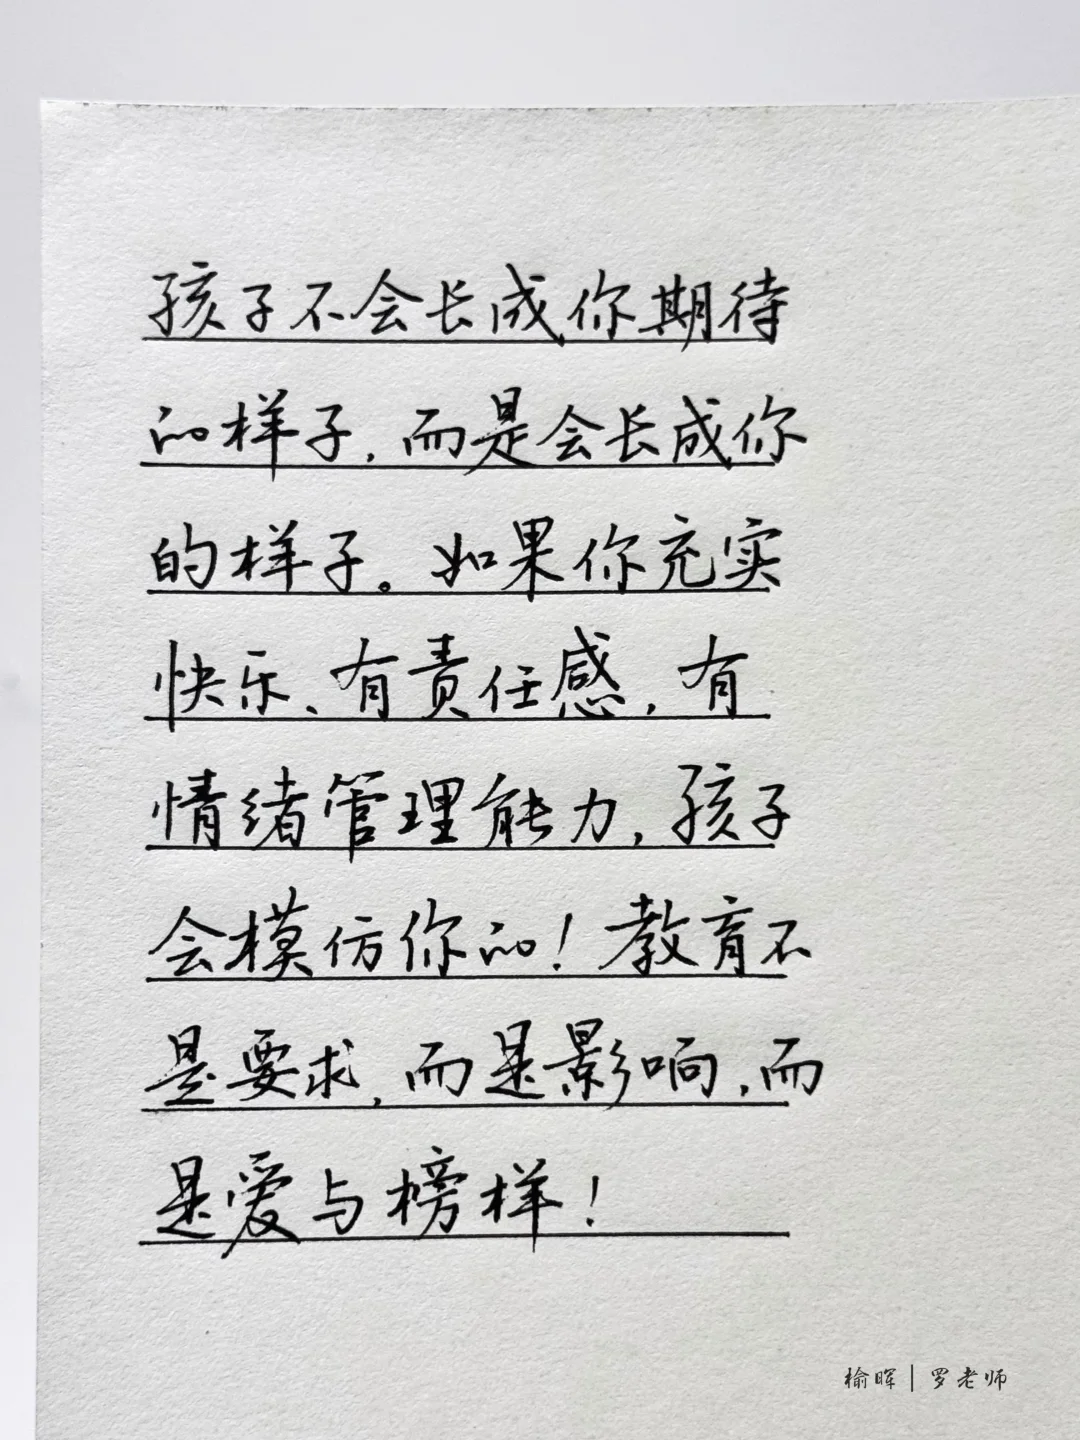 孩子不会长成你期待
的样子，而是会长成你
的样子。如果你充实
快乐、有责任感，有
情绪管理能力，孩子
会模仿你的！教育不
是要求，而是影响，而
是爱与榜样！
榆晖|罗老师